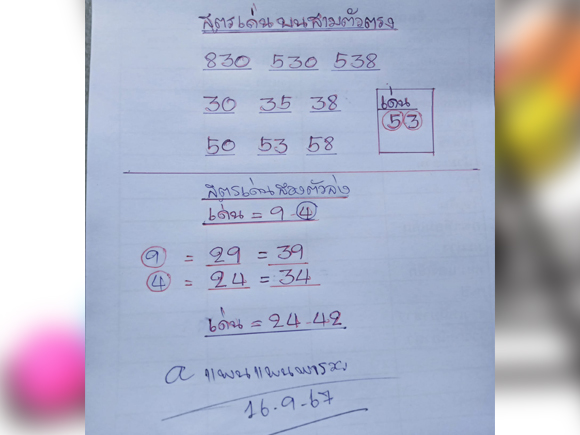 สูตรเด่นบนสามตัวตรง
830 530 538
30 35 38
เด่น
53
50 53 58
สูตรเด่นสองตัวล่าง
เด่น = 9-4
9 = 29 = 39
4 = 24 = 34
เด่น = 24-42
a แพนแพน
16.9-67